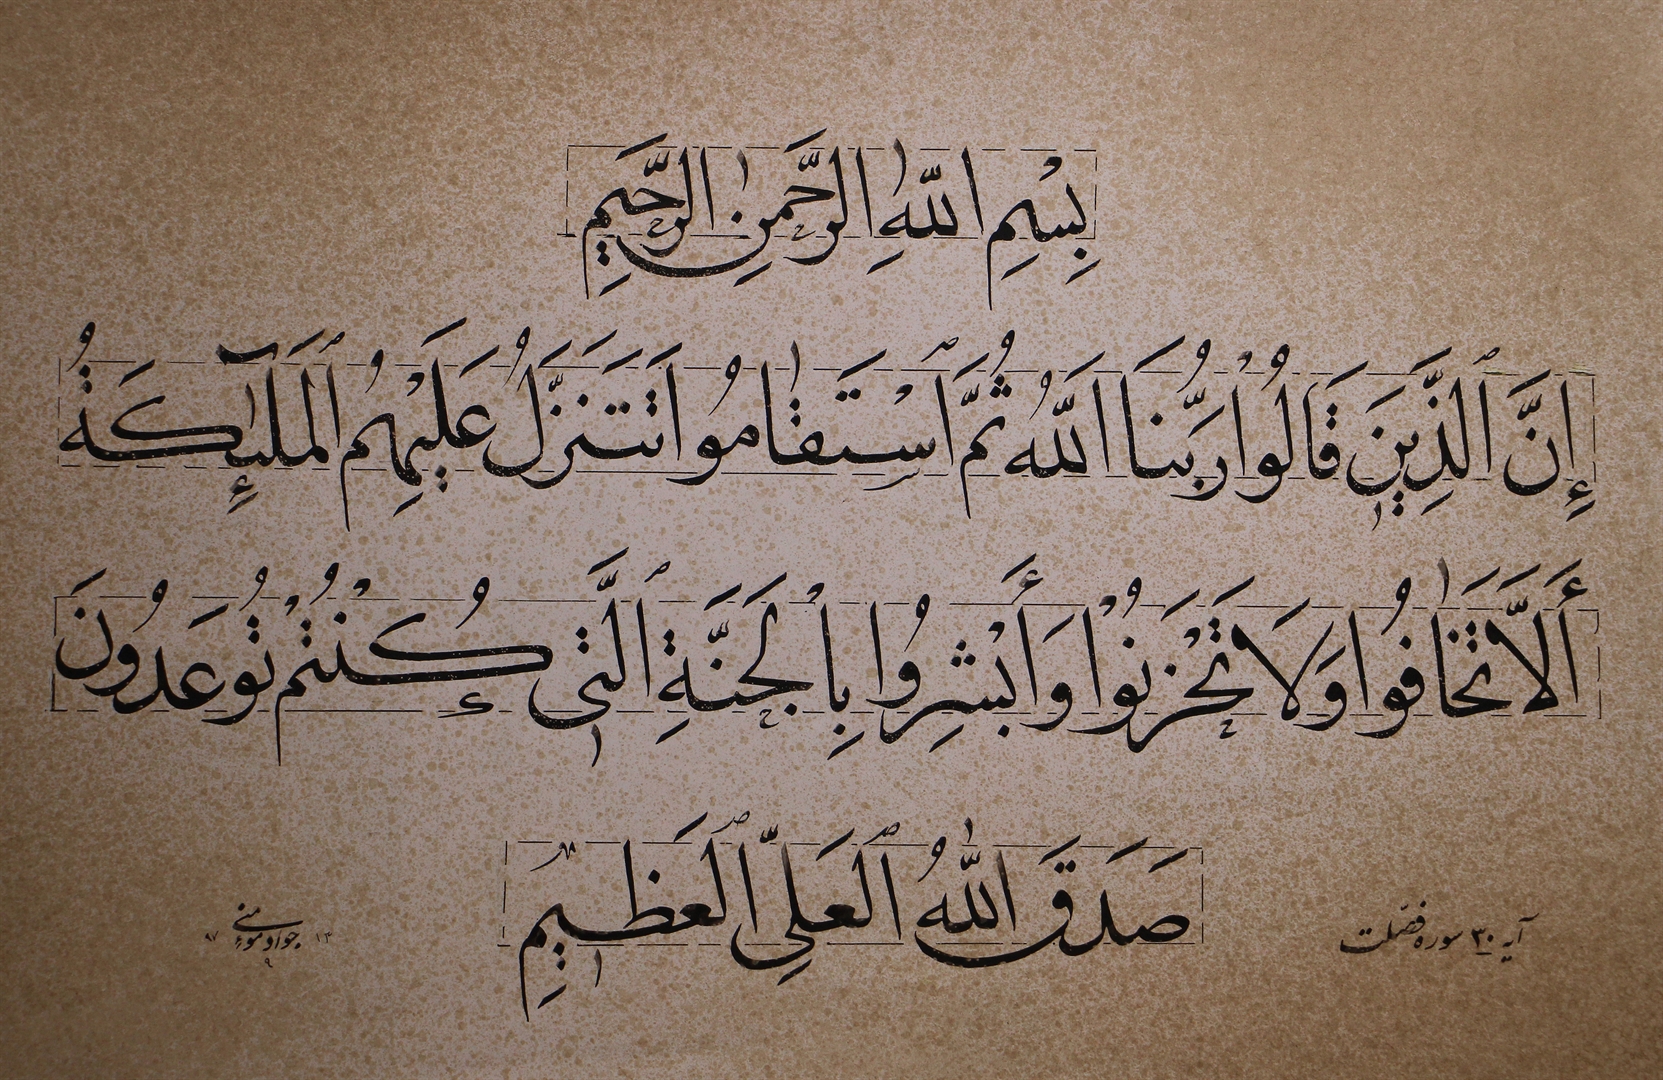 بِسْمِ اللّٰهِ الرَّحْمٰنِ الرَّحِيمِ
إِنَّ ٱلَّذِينَ قَالُوا۟ رَبُّنَا اللَّهُ ثُمَّ ٱسْتَقَٰامُوا تَتَنَزَّلُ عَلَيْهِمُ ٱلْمَلَٰٓئِكَةُ
أَلَّا تَخَافُوا وَلَا تَحْزَنُوْا وَأَبْشِرُوا بِالْجَنَّةِ ٱلَّتِي كُنْتُمْ تُوعَدُونَ
صَدَقَ اللّٰهُ ٱلْعَلِيُّ ٱلْعَظِيمُ
آیه ۳۰ سوره فصّلت
جواد مؤمنی
۱۳۹۷